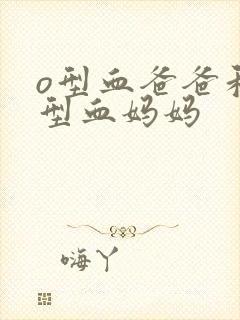 o型血爸爸
型血妈妈
嗨丫